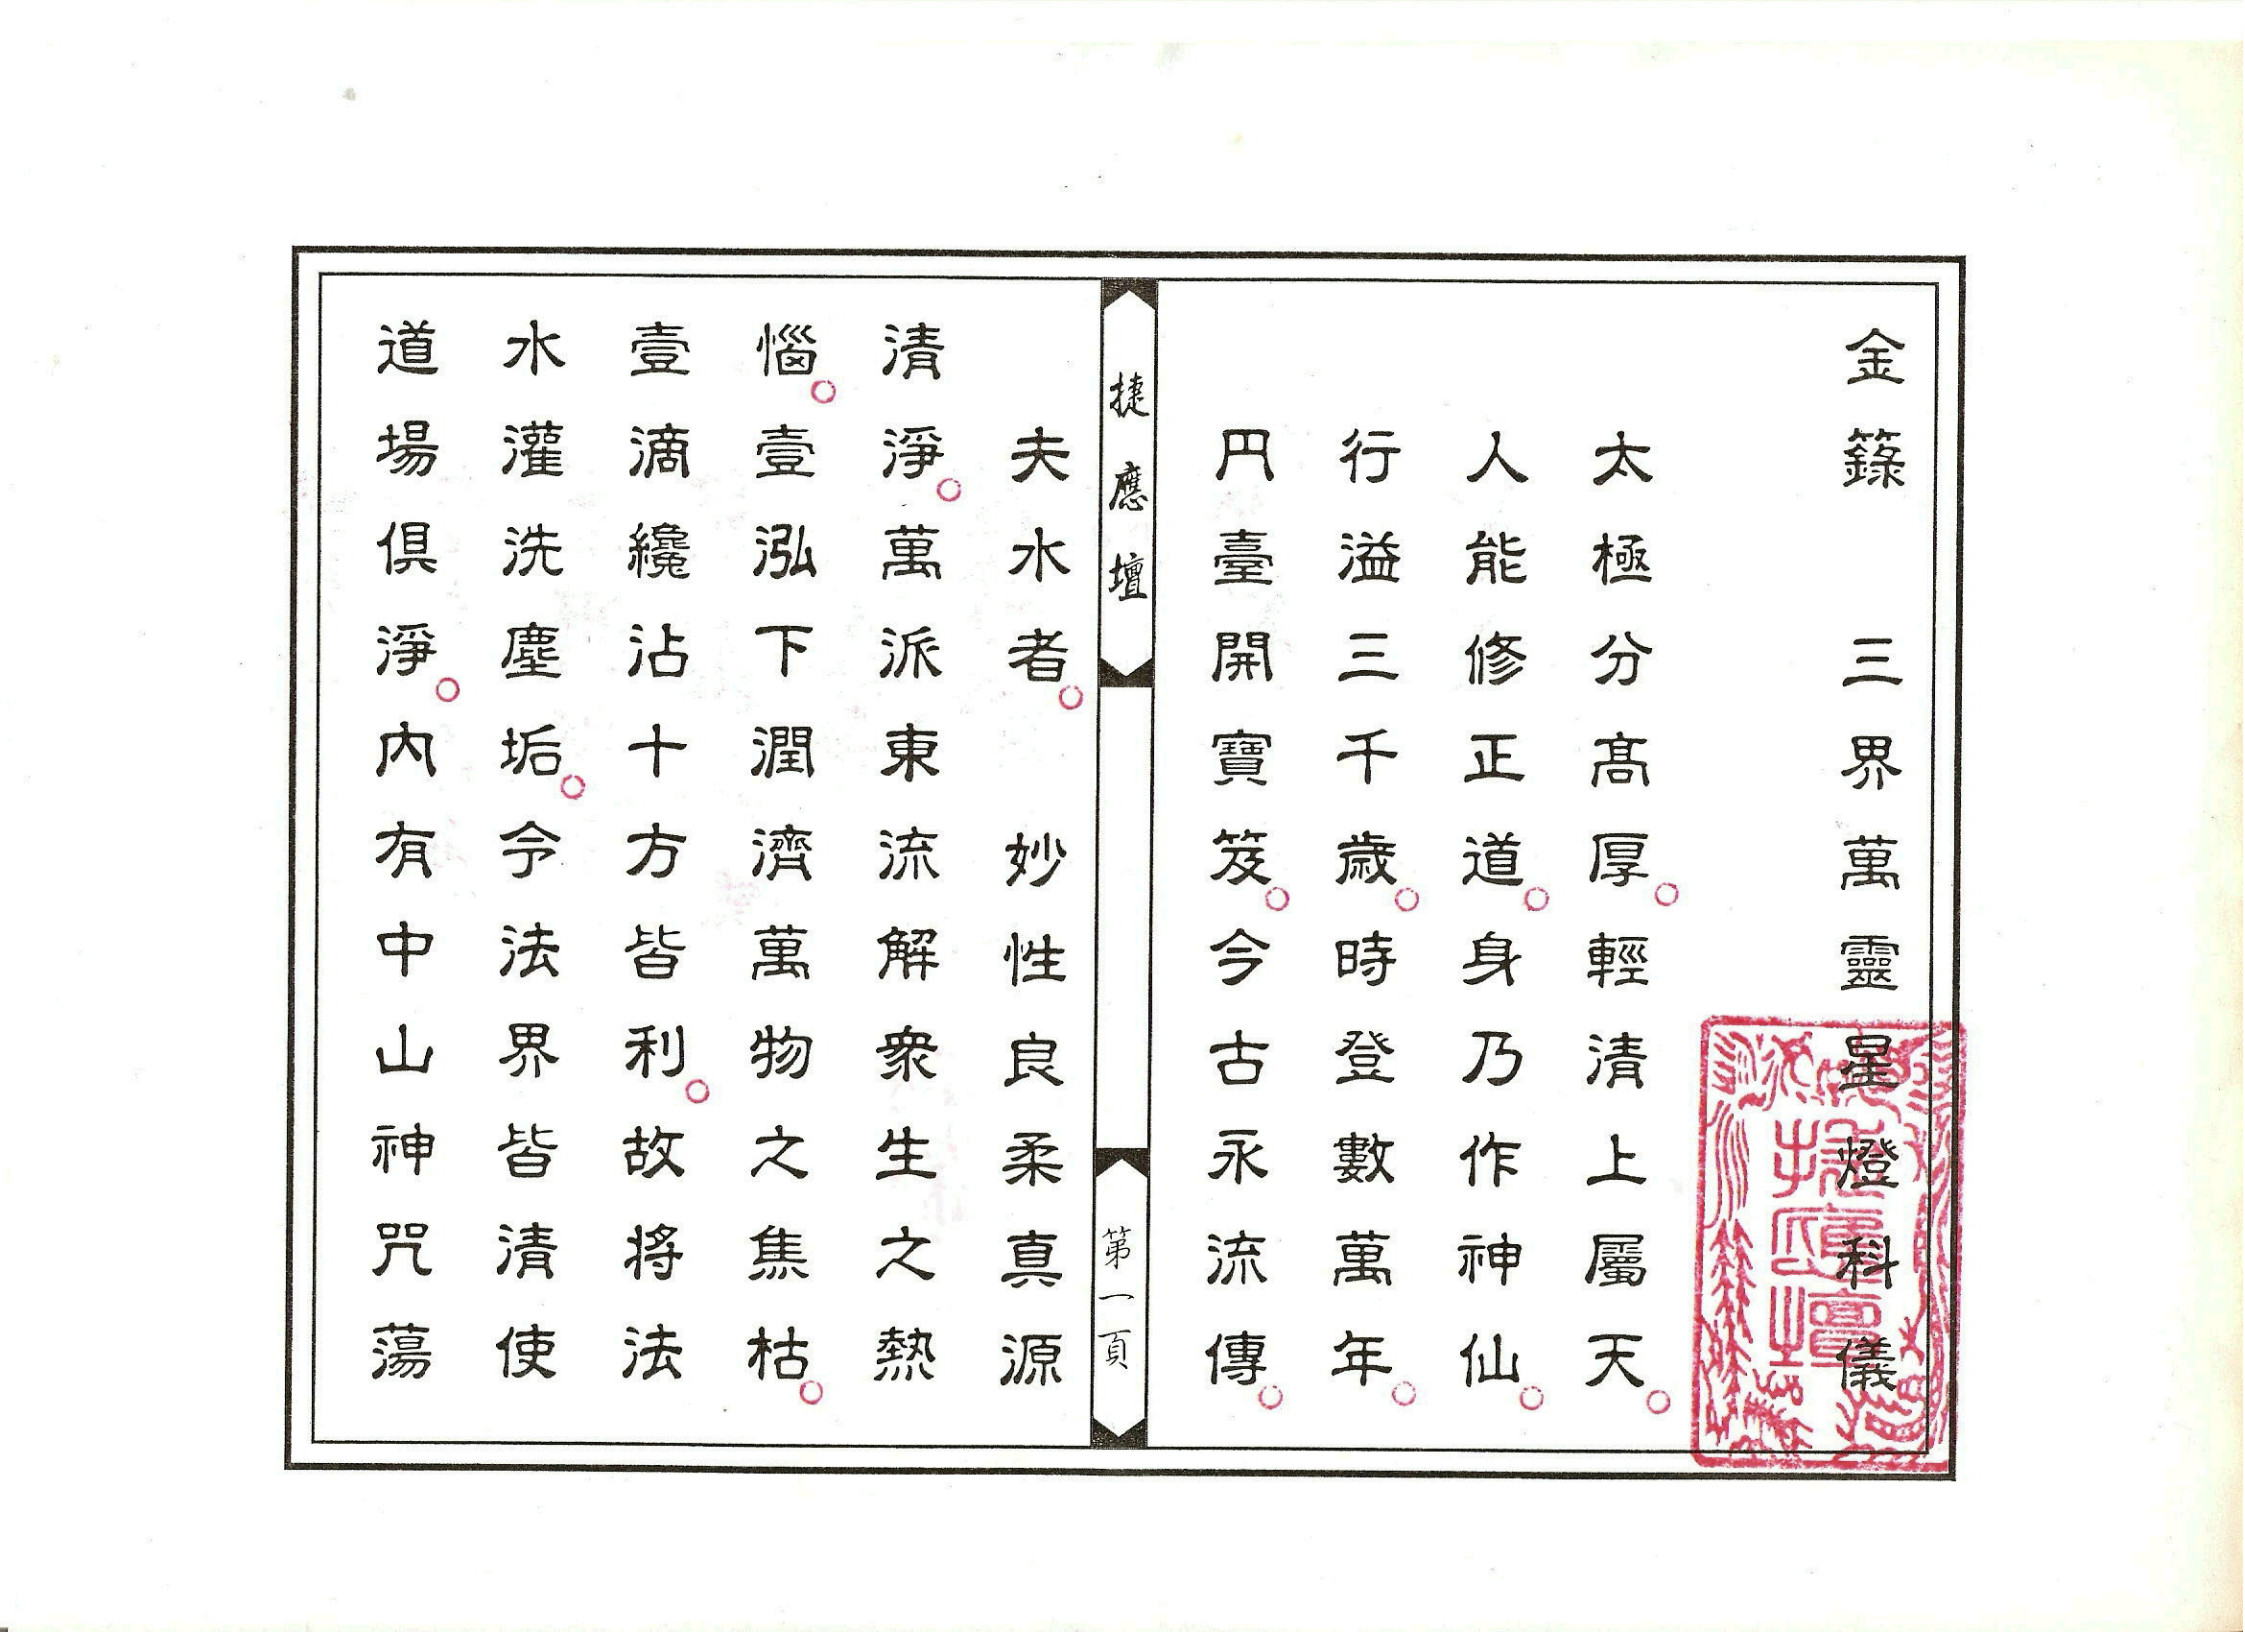 金籙　三界萬靈星燈科儀
太極分高厚。輕清上屬天。
人能修正道。身乃作神仙。
行溢三千歲。時登數萬年。
円臺開寶笈。今古永流傳。
捷應壇
第一頁
夫水者。　妙性良柔真源
清淨。萬派東流解衆生之熱
惱。壹泓下潤濟萬物之焦枯。
壹滴纔沾十方皆利。故將法
水灌洗塵垢。令法界皆清使
道場俱淨。內有中山神咒蕩
捷應壇